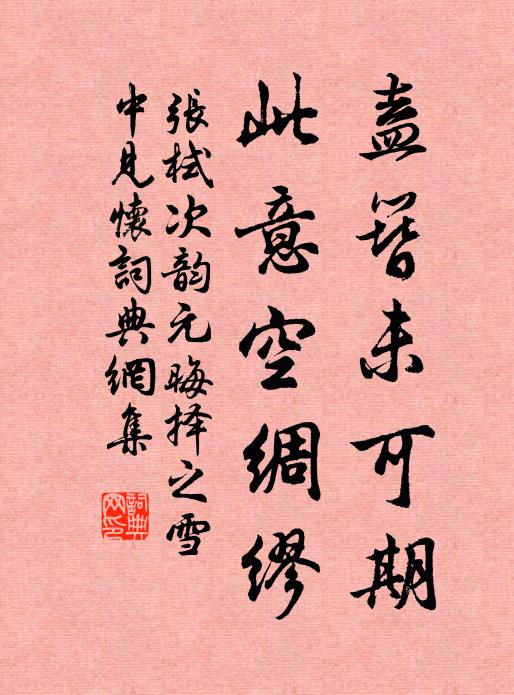 盍簪未可期
此意空綢繆
張栻次韵元晦择之雪
中見懷詞典網集
詞典
网印